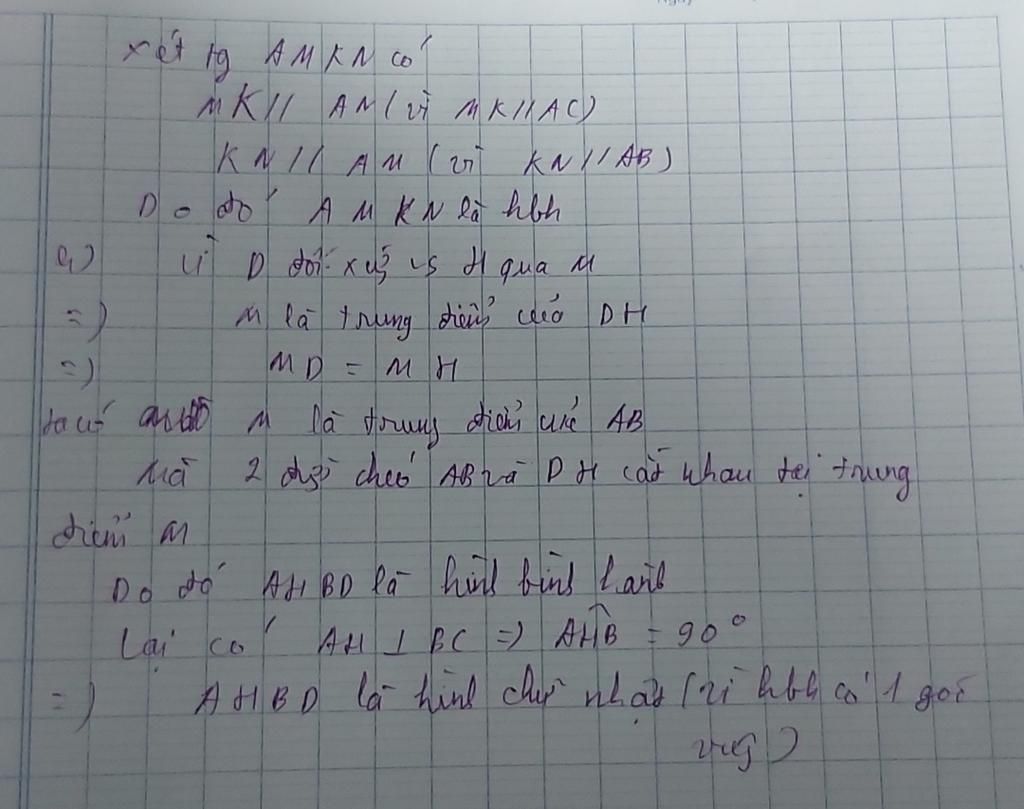 Xét tg AMKN có
MK // AN (vì MK // AC)
KN // AM (vì KN // AB)
Do đó AMKN là hbh
a) Vì D đối xứng vs H qua M
=) M là trung điểm của DH
=) MD = MH
ta có M là trung điểm của AB
Mà 2 đg chéo AB và DH cắt nhau tại trung
điểm M
Do đó AHBD là hình bình hành
Lại có AH ⊥ BC =) AHB = 90°
=) AHBD là hình chữ nhật (vì hbh có 1 góc
vug)